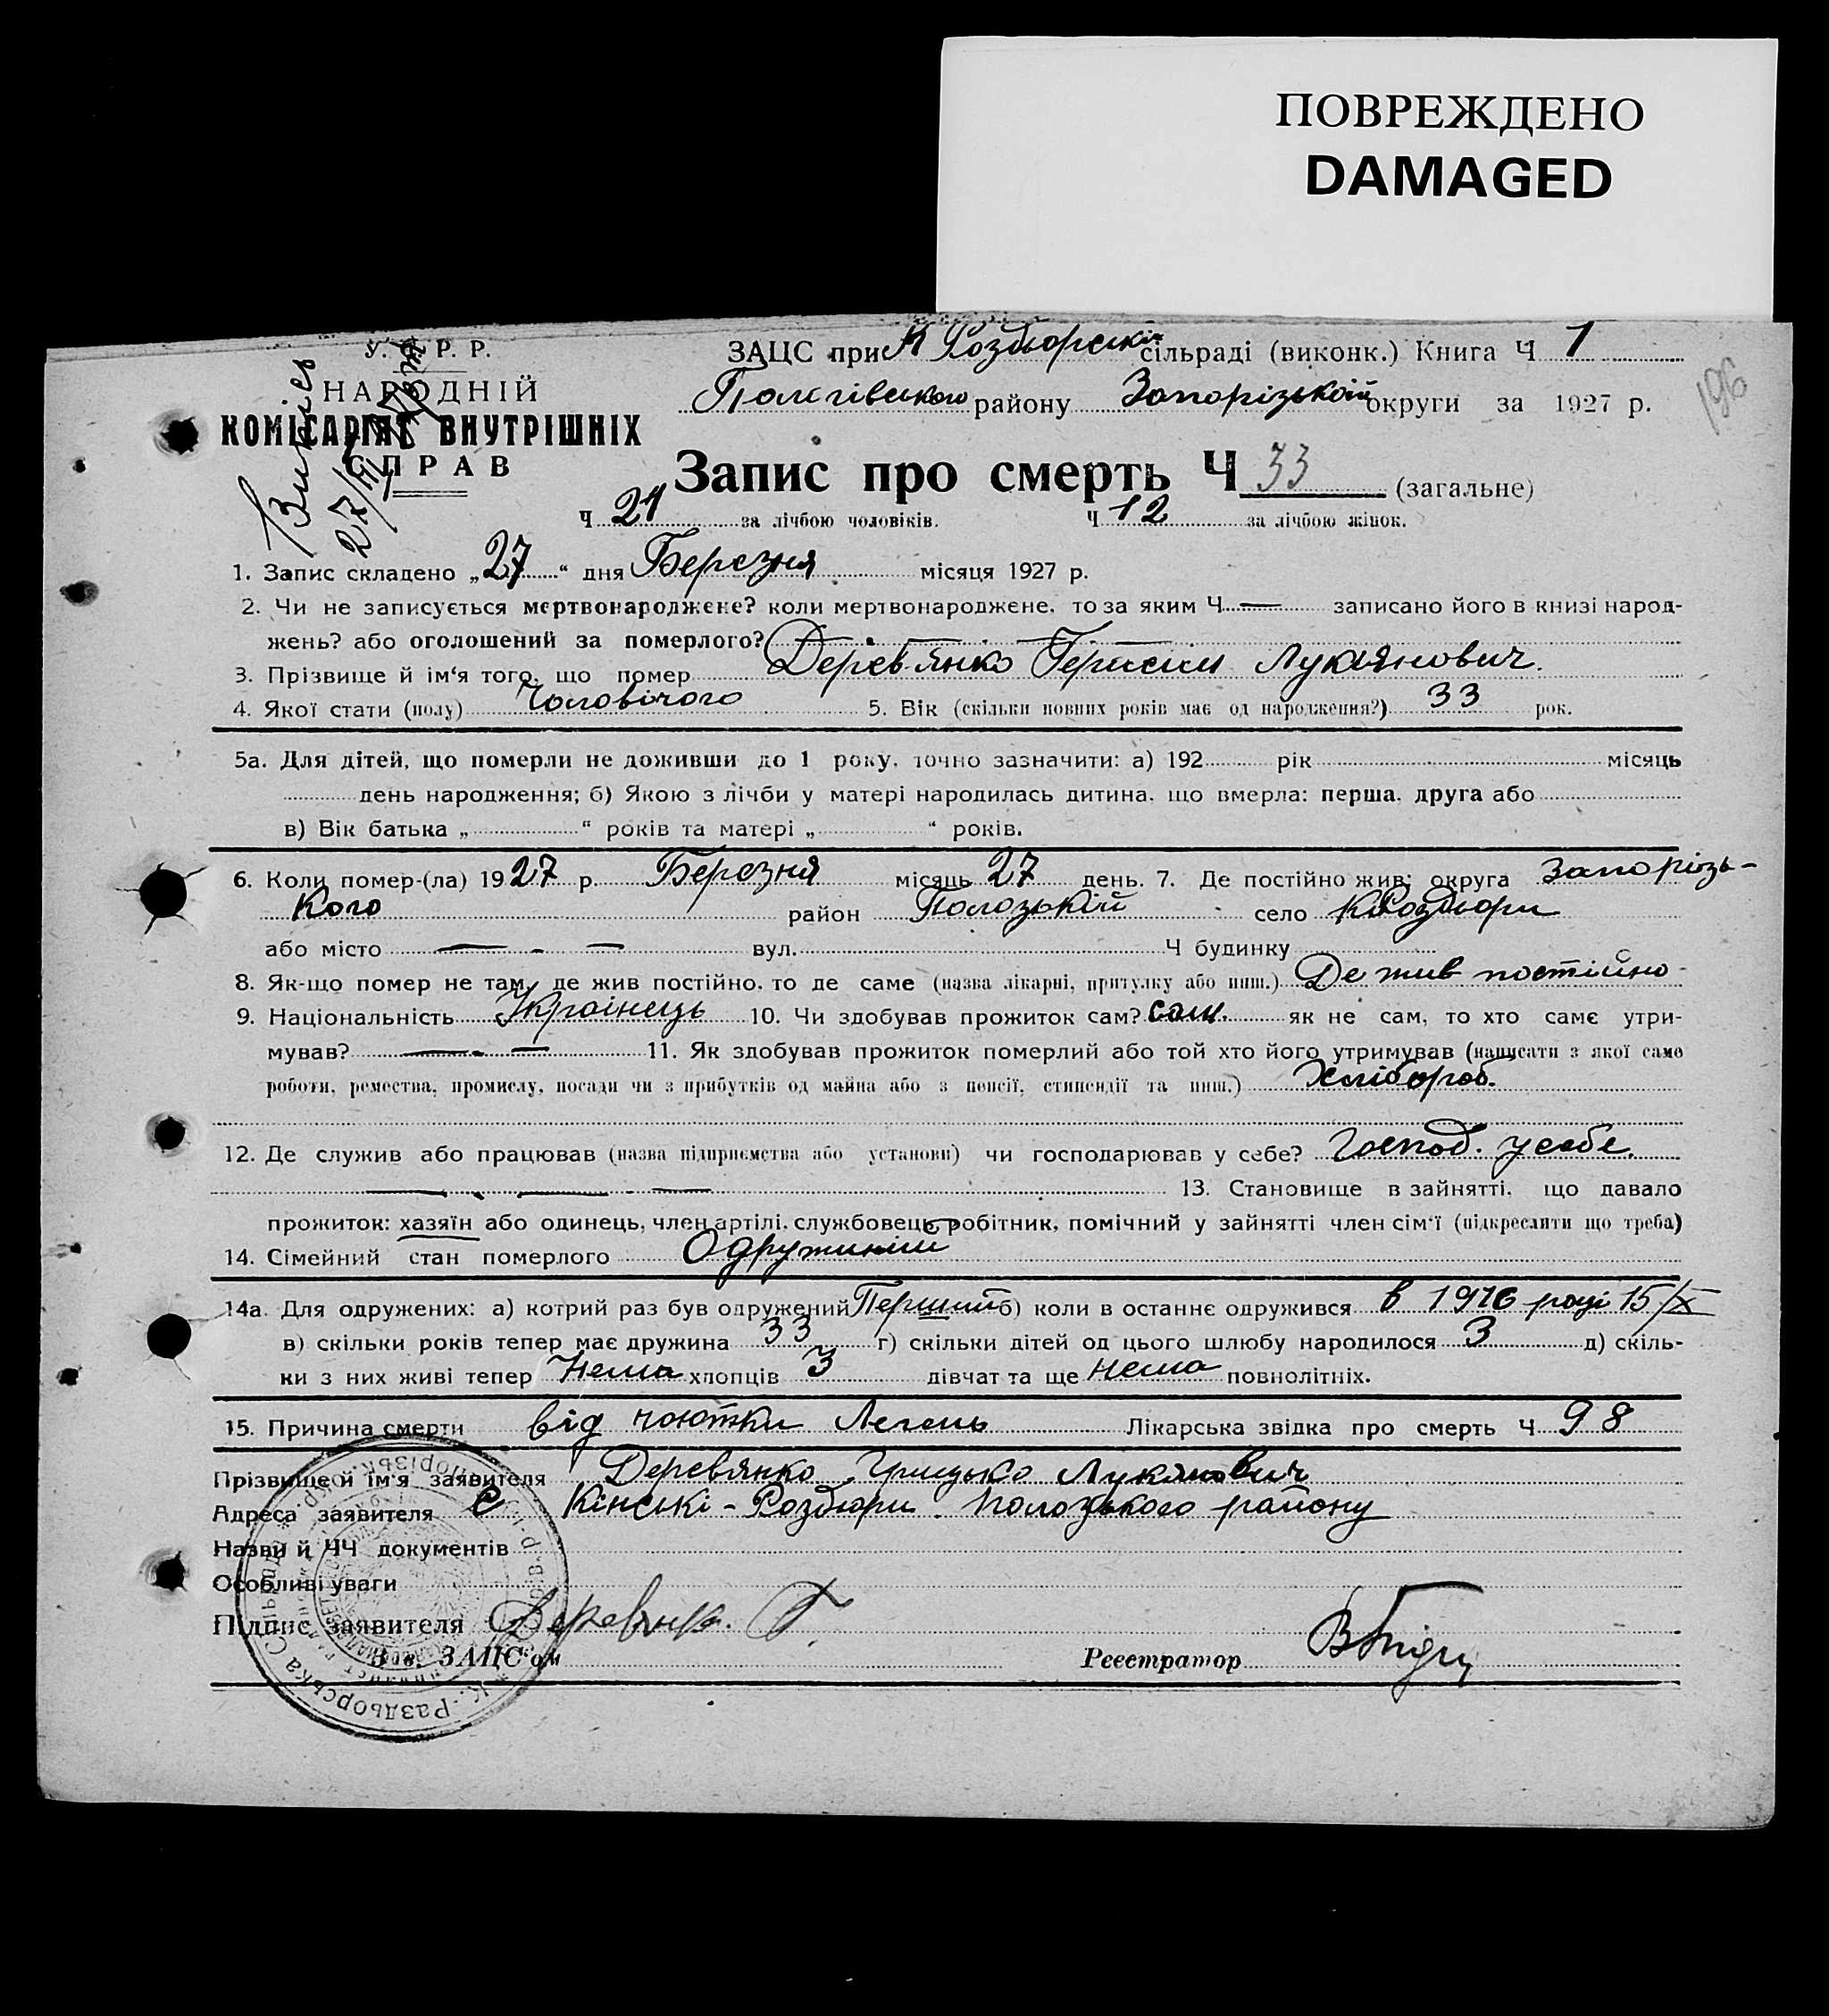 ПОВРЕЖДЕНО
DAMAGED
У. С. Р. Р.
НАРОДНІЙ
КОМІСАРІЯТ ВНУТРІШНІХ
СПРАВ
196
ЗАЦС при К Роздорській сільраді (виконк.) Книга Ч 1
району Запорізькой округи за 1927 р.
Запис про смерть Ч 33 (загальне)
Ч 21 за лічбою чоловіків. Ч 12 за лічбою жінок.
1. Запис складено „27“ дня Березня місяця 1927 р.
2. Чи не записується мертвонароджене? коли мертвонароджене, то за яким Ч — записано його в книзі народ-
жень? або оголошений за померлого? — . — . —
3. Прізвище й ім‘я того, що помер Дерев‘янко Лукянович.
4. Якої стати (полу) Чоловічого 5. Вік (скільки повних років має од народження?) 33 рок.
5а. Для дітей, що померли не доживши до 1 року, точно зазначити: а) 192 рік місяць
день народження; б) Якою з лічби у матері народилась дитина, що вмерла: перша, друга або
в) Вік батька „ “ років та матері „ “ років.
6. Коли помер-(ла) 1927 р. Березня місяць 27 день. 7. Де постійно жив: округа Запорізь-
кого район Пологзькій село К Роздори
або місто — - — вул. Ч будинку
8. Як-що помер не там, де жив постійно, то де саме (назва лікарні, притулку або инш.) Де жив постійно
9. Національність Українець 10. Чи здобував прожиток сам? сам. як не сам, то хто саме утри-
мував? — - — 11. Як здобував прожиток померлий або той хто його утримував (написати з якої само
роботи, ремества, промислу, посади чи з прибутків од майна або з пенсії, стипендії та инш.) Хлібороб.
12. Де служив або працював (назва підприємства або установи) чи господарював у себе? Господ. у себе.
— . — - — 13. Становище в зайнятті, що давало
прожиток: хазяїн або одинець, член артілі, службовець, робітник, помічний у зайнятті член сім‘ї (підкреслити що треба)
14. Сімейний стан померлого Одружиний
14а. Для одружених: а) котрий раз був одружений Перший б) коли в останнє одружився в 1916 році 15/X
в) скільки років тепер має дружина 33 г) скільки дітей од цього шлюбу народилося 3 д) скіль-
ки з них живі тепер Нема хлопців 3 дівчат та ще нема повнолітніх.
15. Причина смерти від Легень Лікарська звідка про смерть Ч 98
Прізвище й ім‘я заявителя Деревянко Грицько Лукянович
Адреса заявителя с Кінські-Роздори Полозького району
Назви й ЧЧ документів
Особливі уваги
Підпис заявителя Деревянко. Г.
Зав. ЗАЦС‘ом Реєстратор